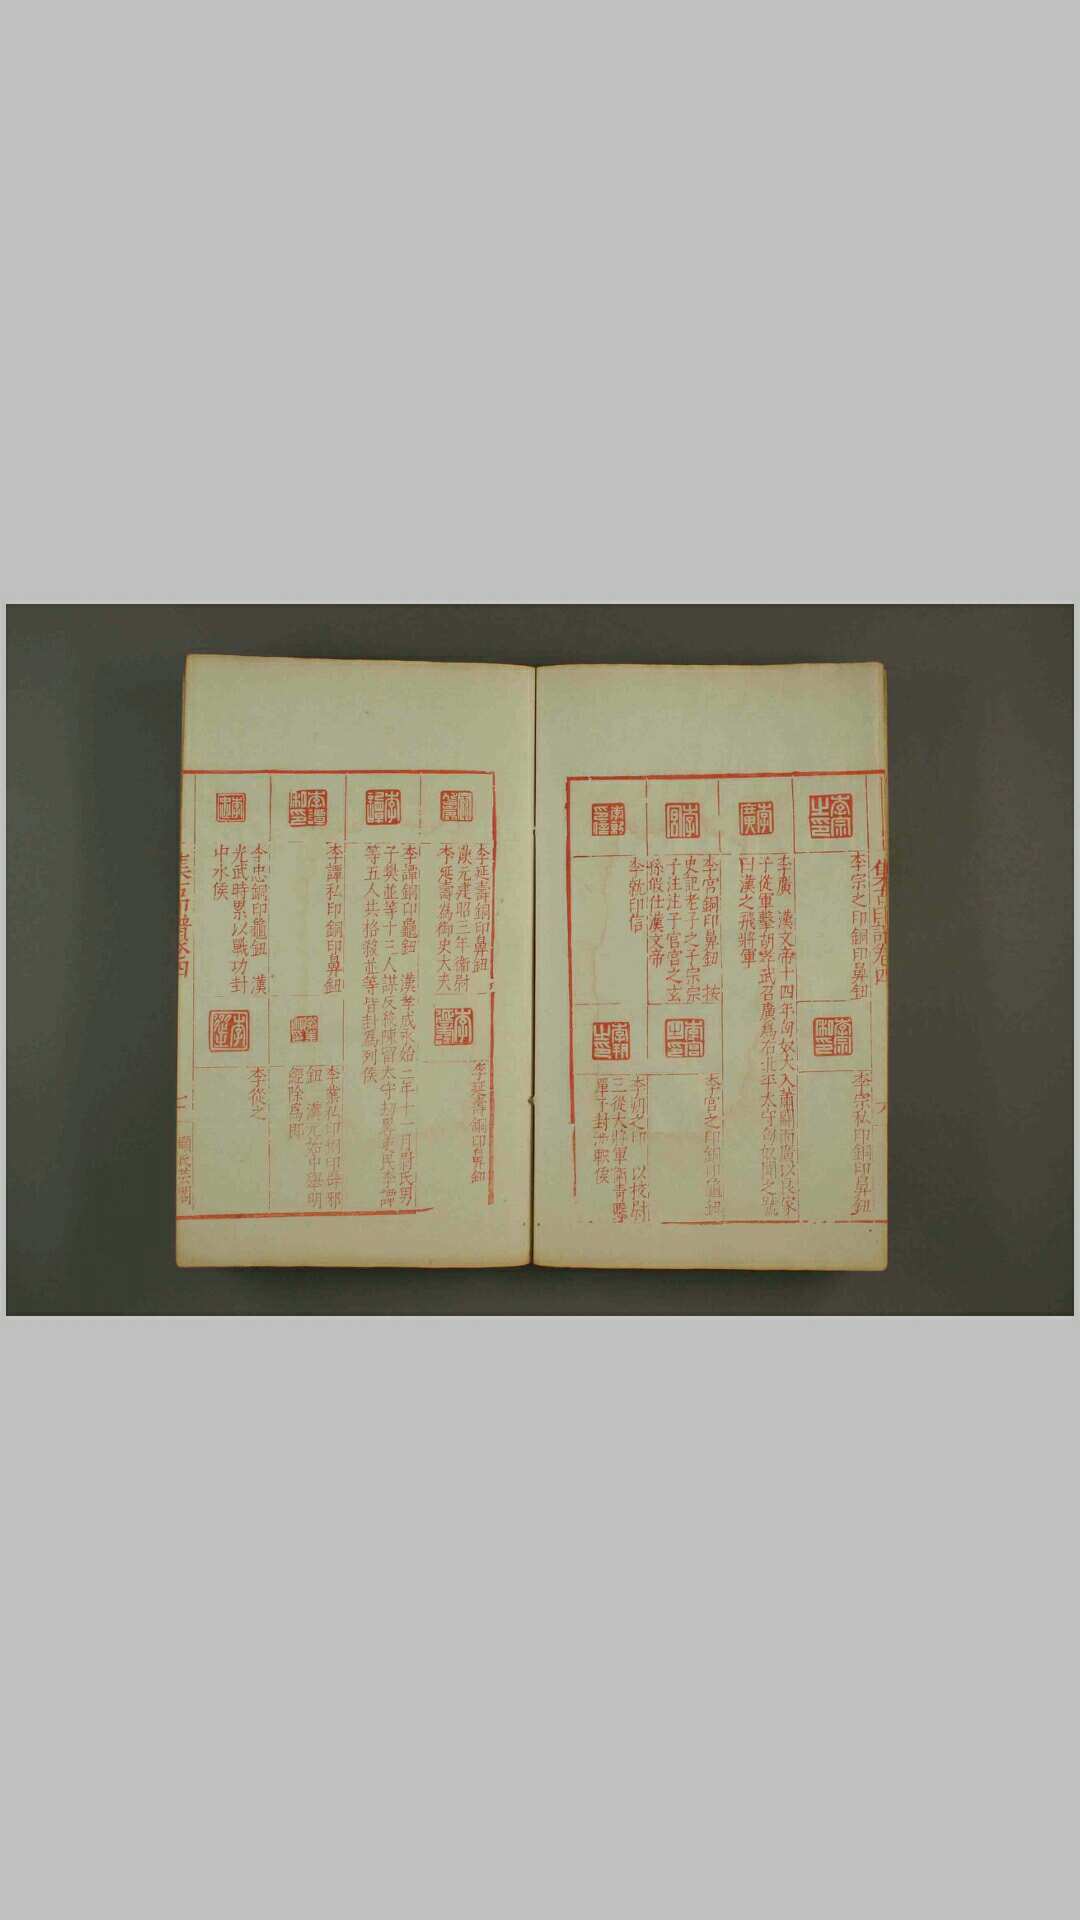 李宗之印銅印鼻鈕
李宗私印銅印鼻鈕
李廣 漢文帝十四年匈奴大入蕭關而廣以良家
子從軍擊胡孝武召廣爲右北平太守匈奴聞之號
曰漢之飛將軍
李宮銅印鼻鈕 按
史記老子之子宗宗
子注注子宮宮之玄
孫假仕漢文帝
李宮之印銅印龜鈕
李就印信
李朔之印 以校尉
三從大將軍衛青擊
單于封涉軹侯
李延壽銅印鼻鈕
漢元建昭三年衛尉
李延壽爲御史大夫
李延壽銅印鼻鈕
李譚銅印龜鈕 漢孝成永始二年十一月尉氏男
子樊並等十三人謀反殺陳留太守劫畧吏民李譚
等五人共格殺並等皆封爲列侯
李譚私印銅印鼻鈕
李業私印銅印辟邪
鈕 漢元始中舉明
經除爲郎
李忠銅印龜鈕 漢
光武時累以戰功封
中水侯
李從之
集古印譜卷四
七
顧氏芸閣